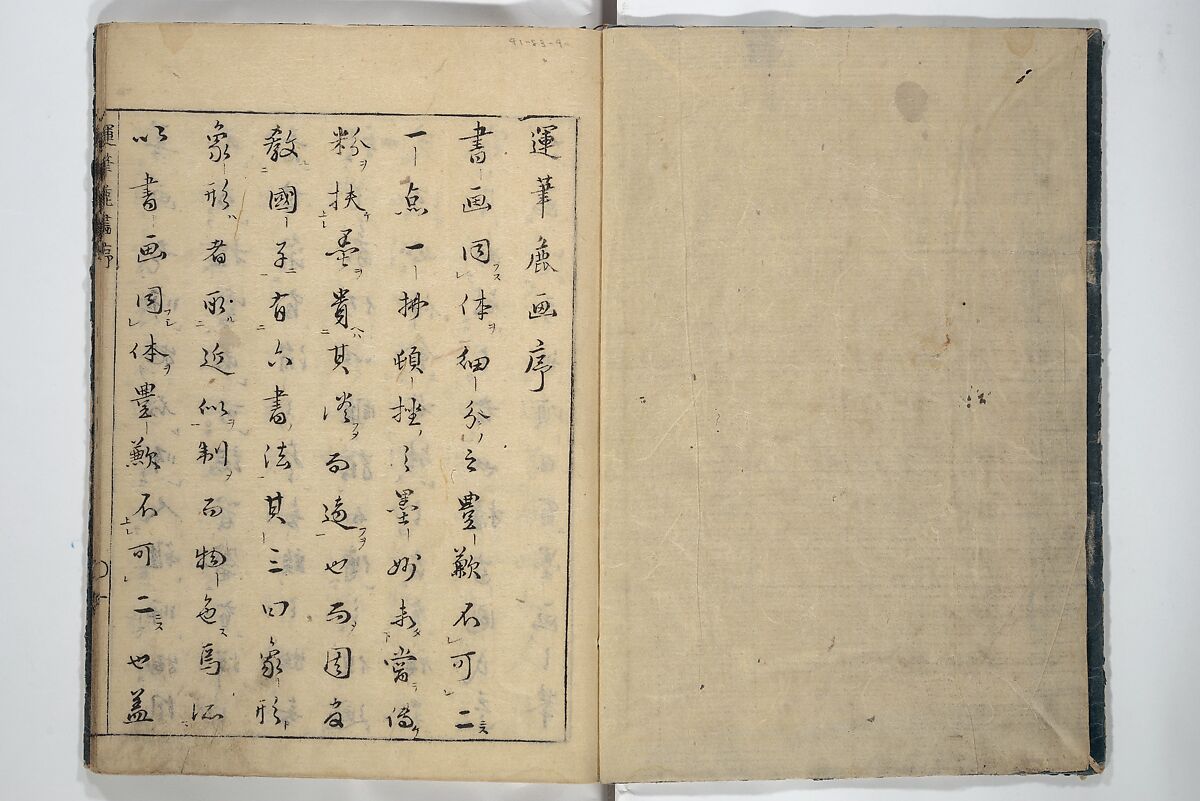 運筆麁画序
書画同体細分之豊歉不可二
一点一拂頓挫之墨妙未當傳
粉扶墨貴其淡而遠也而因
教國子有六書法其三曰象形
象形者取近似制而物色焉
以書画同体豊歉不可二也蓋
運筆麁畫序